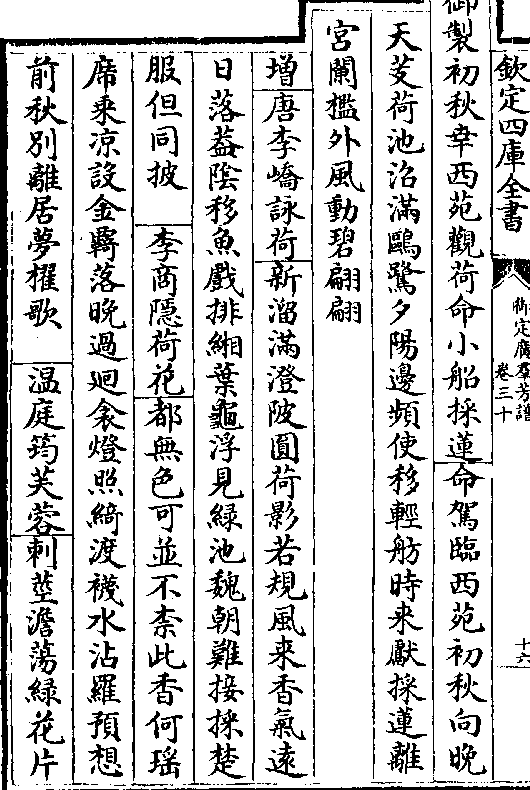 欽定四庫全書
御定廣羣芳譜
卷三十
十六
御製初秋幸西苑觀荷命小船採蓮命駕臨西苑初秋向晚
天芰荷池沼滿鷗鷺夕陽邊頻使移輕舫時来獻採蓮離
宮闌檻外風動碧翩翩
增唐李嶠詠荷新溜滿澄陂圓荷影若規風来香氣逺
日落葢陰移魚戲排緗葉龜浮見緑池魏朝難接採楚
服但同披 李商隠荷花都無色可並不柰此香何瑶
席乘凉設金羈落晚過迴衾燈照綺渡襪水沾羅預想
前秋別離居夢櫂歌 温庭筠芙蓉刺莖澹蕩緑花片